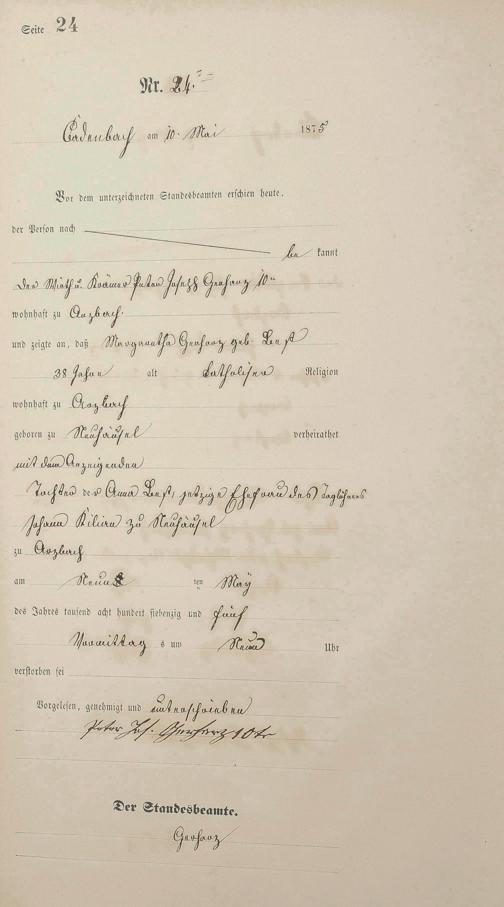 Seite 24
Nr. 24.
Cadenbach am 10. Mai 1875
Vor dem unterzeichneten Standesbeamten erschien heute,
der Person nach
be kannt
der Wirth u. Krämer Peter Joseph Gerharz 10r
wohnhaft zu Arzbach
und zeigte an, daß Margaretha Gerharz geb. Best
38 Jahre alt katholischer Religion
wohnhaft zu Arzbach
geboren zu Neuhäusel verheirathet
mit dem Anzeigenden
Tochter der Anna Best, jetzige Ehefrau des Taglöhners
Johann Kilian zu Neuhäusel
zu Arzbach
am Neun ten May
des Jahres tausend acht hundert siebenzig und fünf
Vormittag s um Neun Uhr
verstorben sei
Vorgelesen, genehmigt und unterschrieben
Peter Jos. Gerharz 10te
Der Standesbeamte.
Gerharz